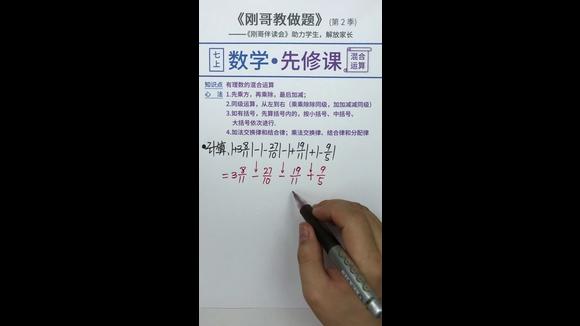 《刚哥教做题》(第2季)
——《刚哥伴读会》助力学生，解放家长
七上 数学·先修课 混合运算
知识点 有理数的混合运算
心 法 1.先乘方，再乘除，最后加减；
2.同级运算，从左到右（乘乘除除同级，加加减减同级）
3.如有括号，先算括号内的，按小括号、中括号、
大括号依次进行.
4.加法交换律和结合律；乘法交换律、结合律和分配律
计算,|+3 8/11|-|-27/10|-|+19/11|+|-9/5|
=3 8/11 - 27/10 - 19/11 + 9/5